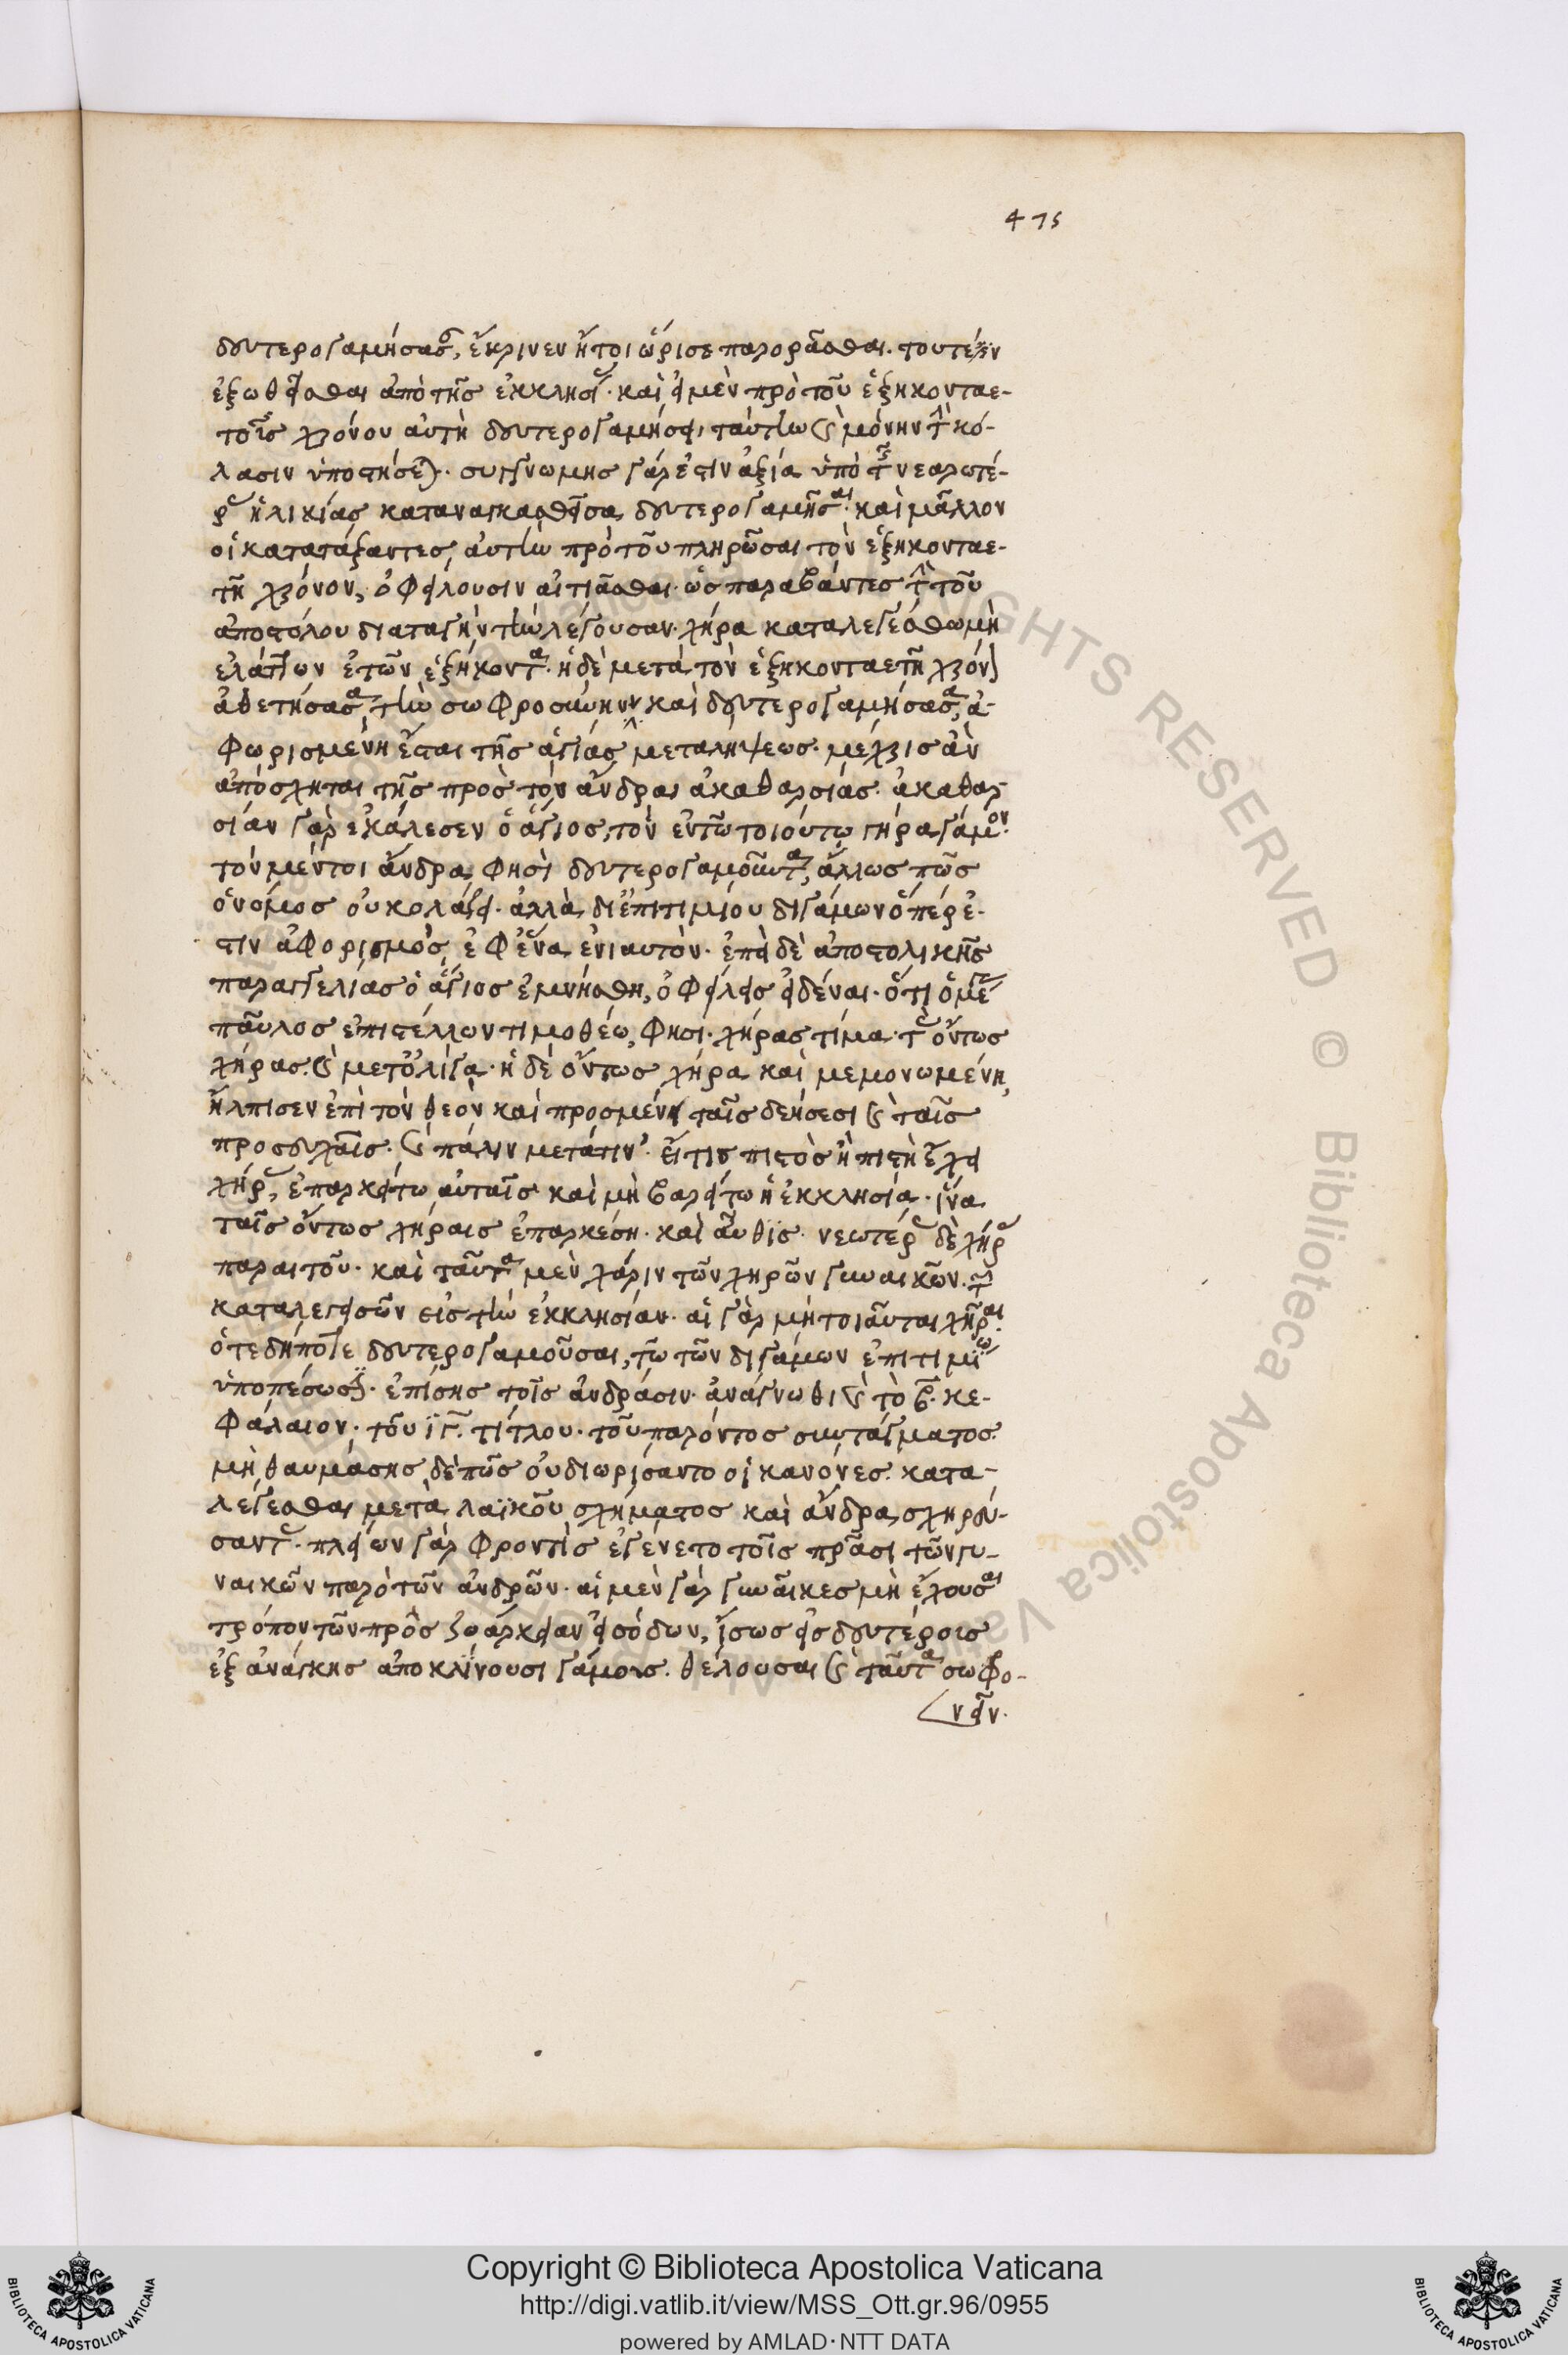 475
δευτερογαμήσασαν, ἔκρινεν ἤτοι ὥρισε παρορᾶσθαι. τουτέστιν
ἐξωθεῖσθαι ἀπὸ τῆς ἐκκλησίας· καὶ εἰ μὲν πρὸ τοῦ ἑξηκονταε-
τοῦς χρόνου αὐτὴ δευτερογαμήσει, ταύτην καὶ μόνην τὴν κό-
λασιν ὑποστήσεται· συγγνώμης γάρ ἐστιν ἀξία ὑπὸ τῆς νεαρωτέ-
ρας ἡλικίας καταναγκασθεῖσα δευτερογαμῆσαι· καὶ μᾶλλον
οἱ κατατάξαντες αὐτὴν πρὸ τοῦ πληρῶσαι τὸν ἑξηκονταε-
τῆ χρόνον, ὀφείλουσιν αἰτιᾶσθαι· ὡς παραβάντες τὴν τοῦ
ἀποστόλου διαταγὴν τὴν λέγουσαν· χήρα καταλεγέσθω μὴ
ἐλάττων ἐτῶν ἑξήκοντα· ἡ δὲ μετὰ τὸν ἑξηκονταετῆ χρόνον
ἀθετήσασα τὴν σωφροσύνην καὶ δευτερογαμήσασα, ἀ-
φωρισμένη ἔσται τῆς ἁγίας μεταλήψεως· μέχρις ἂν
ἀπόσχηται τῆς πρὸς τὸν ἄνδρα ἀκαθαρσίας. ἀκαθαρ-
σίαν γὰρ ἐκάλεσεν ὁ ἅγιος, τὸν ἐν τῷ τοιούτῳ γήρᾳ γάμον·
τὸν μέντοι ἄνδρα φησὶ δευτερογαμοῦντα, ἄλλως πῶς
ὁ νόμος οὐ κολάζει· ἀλλὰ δι' ἐπιτιμίου διγάμων ὅπερ ἐ-
στιν ἀφορισμὸς ἐφ' ἕνα ἐνιαυτὸν· ἐπεὶ δὲ ἀποστολικῆς
παραγγελίας ὁ ἅγιος ἐμνήσθη, ὀφείλεις εἰδέναι· ὅτι ὁ μέγας
παῦλος ἐπιστέλλων τιμοθέῳ, φησι· χήρας τίμα· τὰς ὄντως
χήρας. καὶ μετ' ὀλίγα· ἡ δὲ ὄντως χήρα καὶ μεμονωμένη,
ἤλπισεν ἐπὶ τὸν θεὸν καὶ προσμένει ταῖς δεήσεσι καὶ ταῖς
προσευχαῖς· καὶ πάλιν μετά τινα· εἴ τις πιστὸς ἢ πιστὴ ἔχει
χήρας, ἐπαρκείτω αὐταῖς καὶ μὴ βαρείτω ἡ ἐκκλησία· ἵνα
ταῖς ὄντως χήραις ἐπαρκέσῃ· καὶ αὖθις· νεωτέρας δὲ χήρας
παραιτοῦ· καὶ ταῦτα μὲν χάριν τῶν χηρῶν γυναικῶν. τῶν
καταλεγεισῶν εἰς τὴν ἐκκλησίαν· αἱ γὰρ μὴ τοιαῦται χῆραι·
ὅτε δήποτε δευτερογαμοῦσαι, τῷ τῶν διγάμων ἐπιτιμίῳ
ὑποπέσωσιν· ἐπίσης τοῖς ἀνδράσιν· ἀνάγνωθι καὶ τὸ β. κε-
φάλαιον· τοῦ ιγ. τίτλου· τοῦ παρόντος συντάγματος·
μὴ θαυμάσῃς δὲ πῶς οὐ διωρίσαντο οἱ κανόνες κατα-
λέγεσθαι μετὰ λαϊκοῦ σχήματος καὶ ἄνδρας χηρεύ-
σαντας· πλείων γὰρ φροντὶς ἐγένετο τοῖς πρᾶσι τῶν γυ-
ναικῶν παρὸ τῶν ἀνδρῶν· αἱ μὲν γὰρ γυναῖκες μὴ ἔχουσαι
τρόπον τῶν πρὸς ζωάρκειαν εἰσόδων, ἴσως εἰς δευτέροις
ἐξ ἀνάγκης ἀποκλίνουσι γάμοις. θέλουσαι καὶ ταῦτα σωφρο-
νεῖν·
ALL RIGHTS RESERVED © Biblioteca Apostolica Vaticana
Copyright © Biblioteca Apostolica Vaticana
http://digi.vatlib.it/view/MSS_Ott.gr.96/0955
powered by AMLAD·NTT DATA
BIBLIOTECA APOSTOLICA VATICANA
BIBLIOTECA APOSTOLICA VATICANA